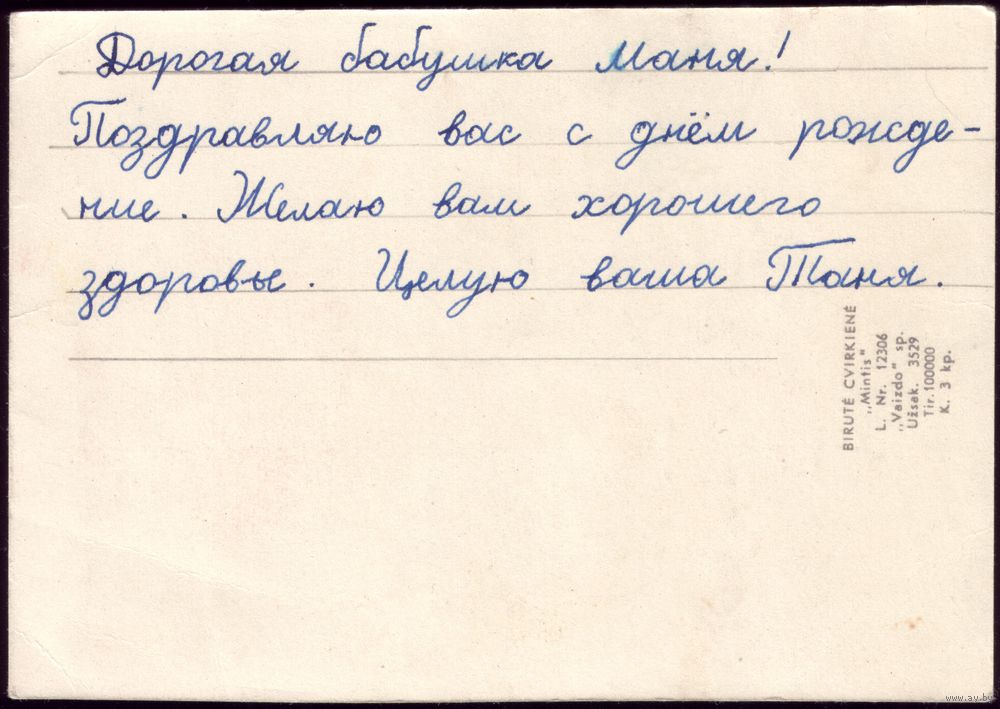 Дорогая бабушка Маня!
Поздравляю вас с днём рожде-
ние. Желаю вам хорошего
здоровье. Целую ваша Таня.
BIRUTĖ CVIRKIENĖ
„Mintis"
L. Nr. 12306
„Vaizdo" sp.
Užsak. 3529
Tir. 100000
K. 3 kp.
www.av.by